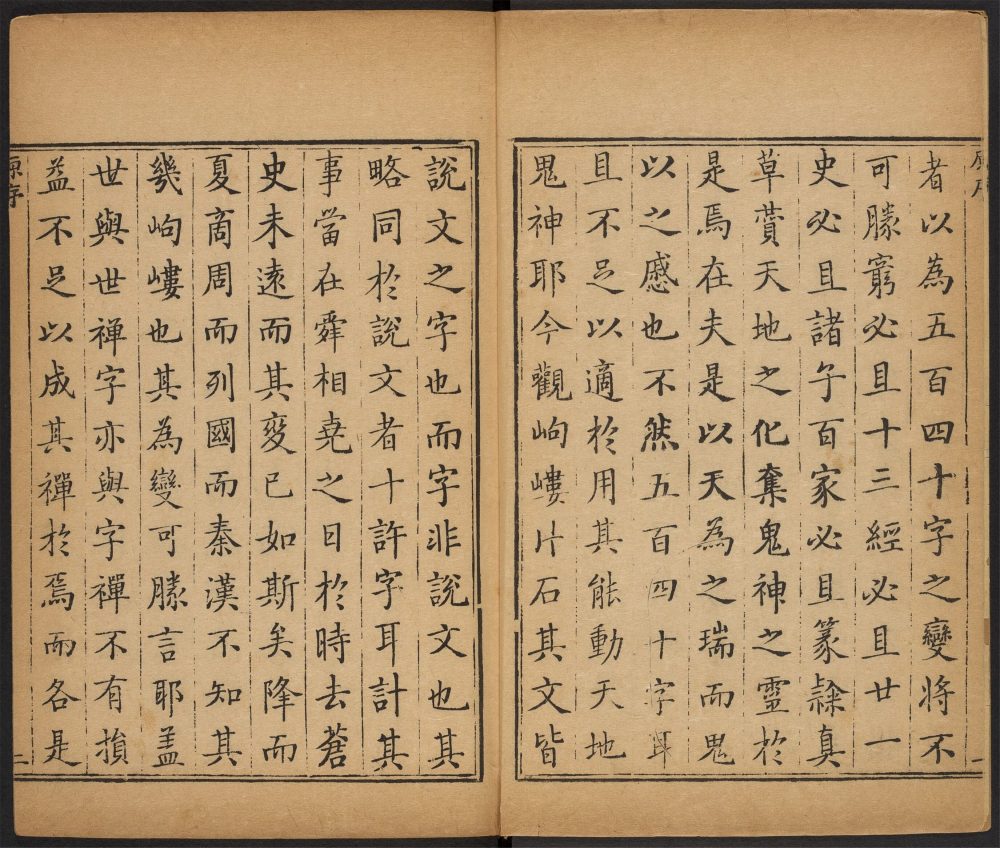 原序
者以為五百四十字之變將不
可勝窮必且十三經必且廿一
史必且諸子百家必且篆隸真
草蕡天地之化奪鬼神之靈於
是焉在夫是以天為之瑞而鬼
以之慼也不然五百四十字耳
且不足以適於用其能動天地
鬼神耶今觀岣嶁片石其文皆
一
說文之字也而字非說文也其
略同於說文者十許字耳計其
事當在舜相堯之日於時去蒼
史未遠而其變已如斯矣降而
夏商周而列國而秦漢不知其
幾岣嶁也其為變可勝言耶盖
世與世禪字亦與字禪不有損
益不足以成其禪於焉而各是
原序
二